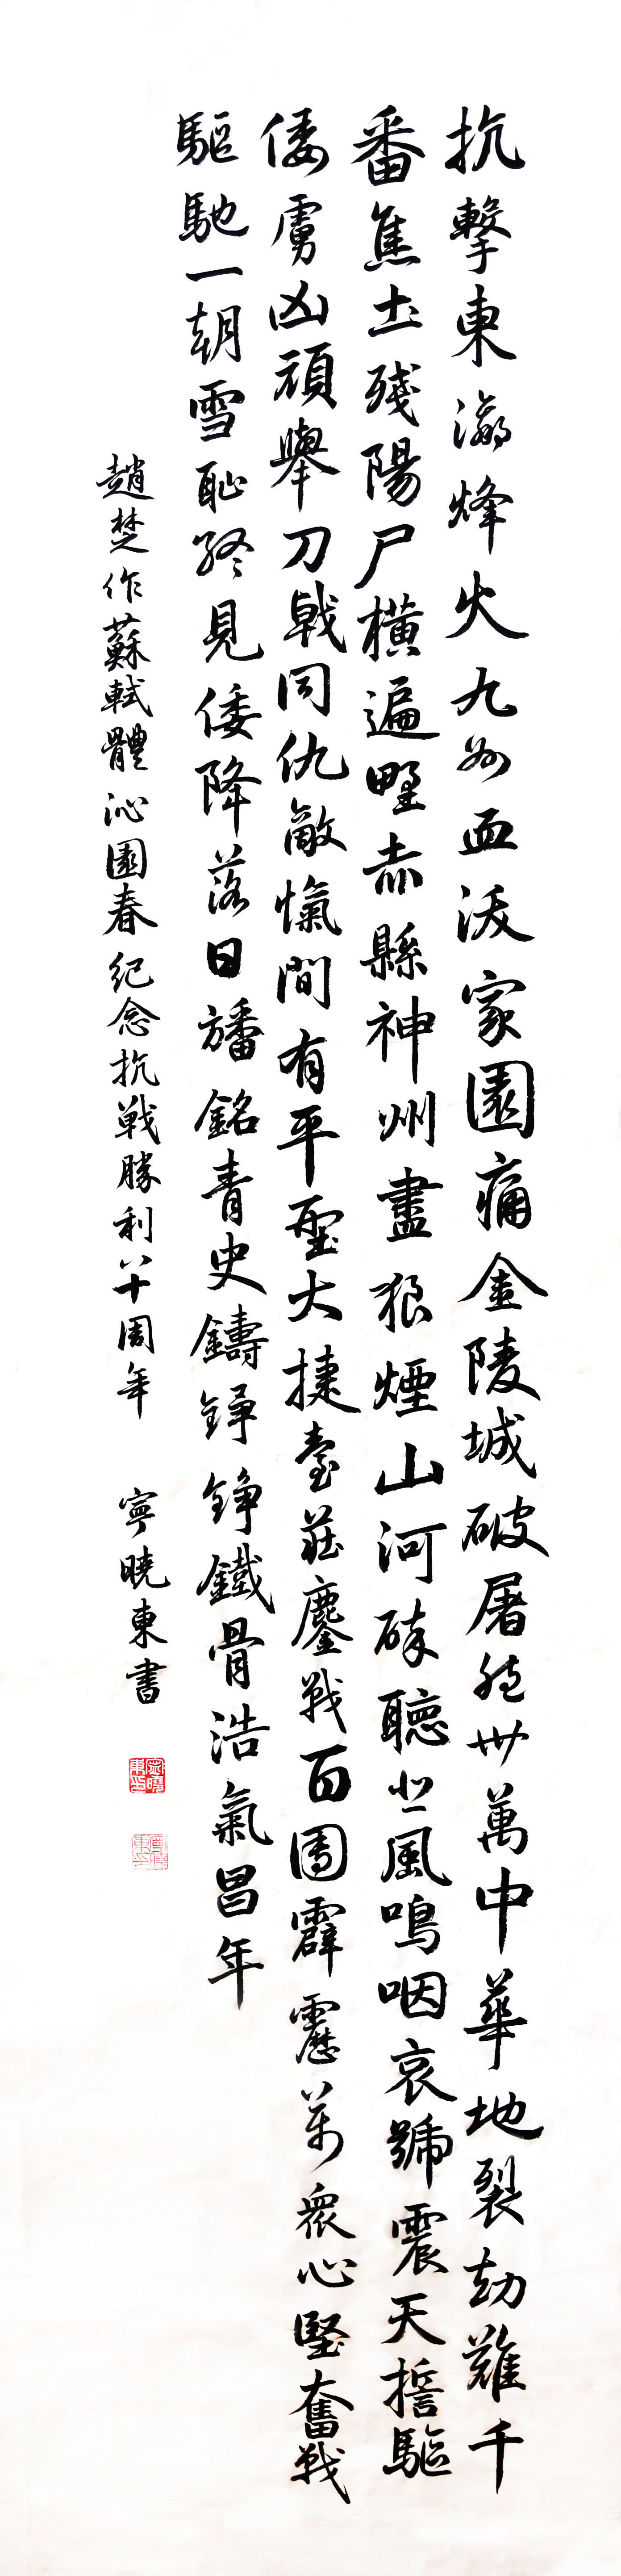 抗擊東瀛烽火九州血沃家園痛金陵城破屠卅萬中華地裂劫難千
番焦土殘陽尸橫遍野赤縣神州盡狼煙山河碎聽悲風鳴咽哀號震天誓驅
倭虜凶頑舉刀戟同仇敵愾間有平型大捷臺莊鏖戰百團霹靂萬衆心堅奮戰
驅馳一朝雪恥終見倭降落日旛銘青史鑄錚錚鐵骨浩氣昌年
趙楚作蘇軾體沁園春紀念抗戰勝利八十周年 寧曉東書